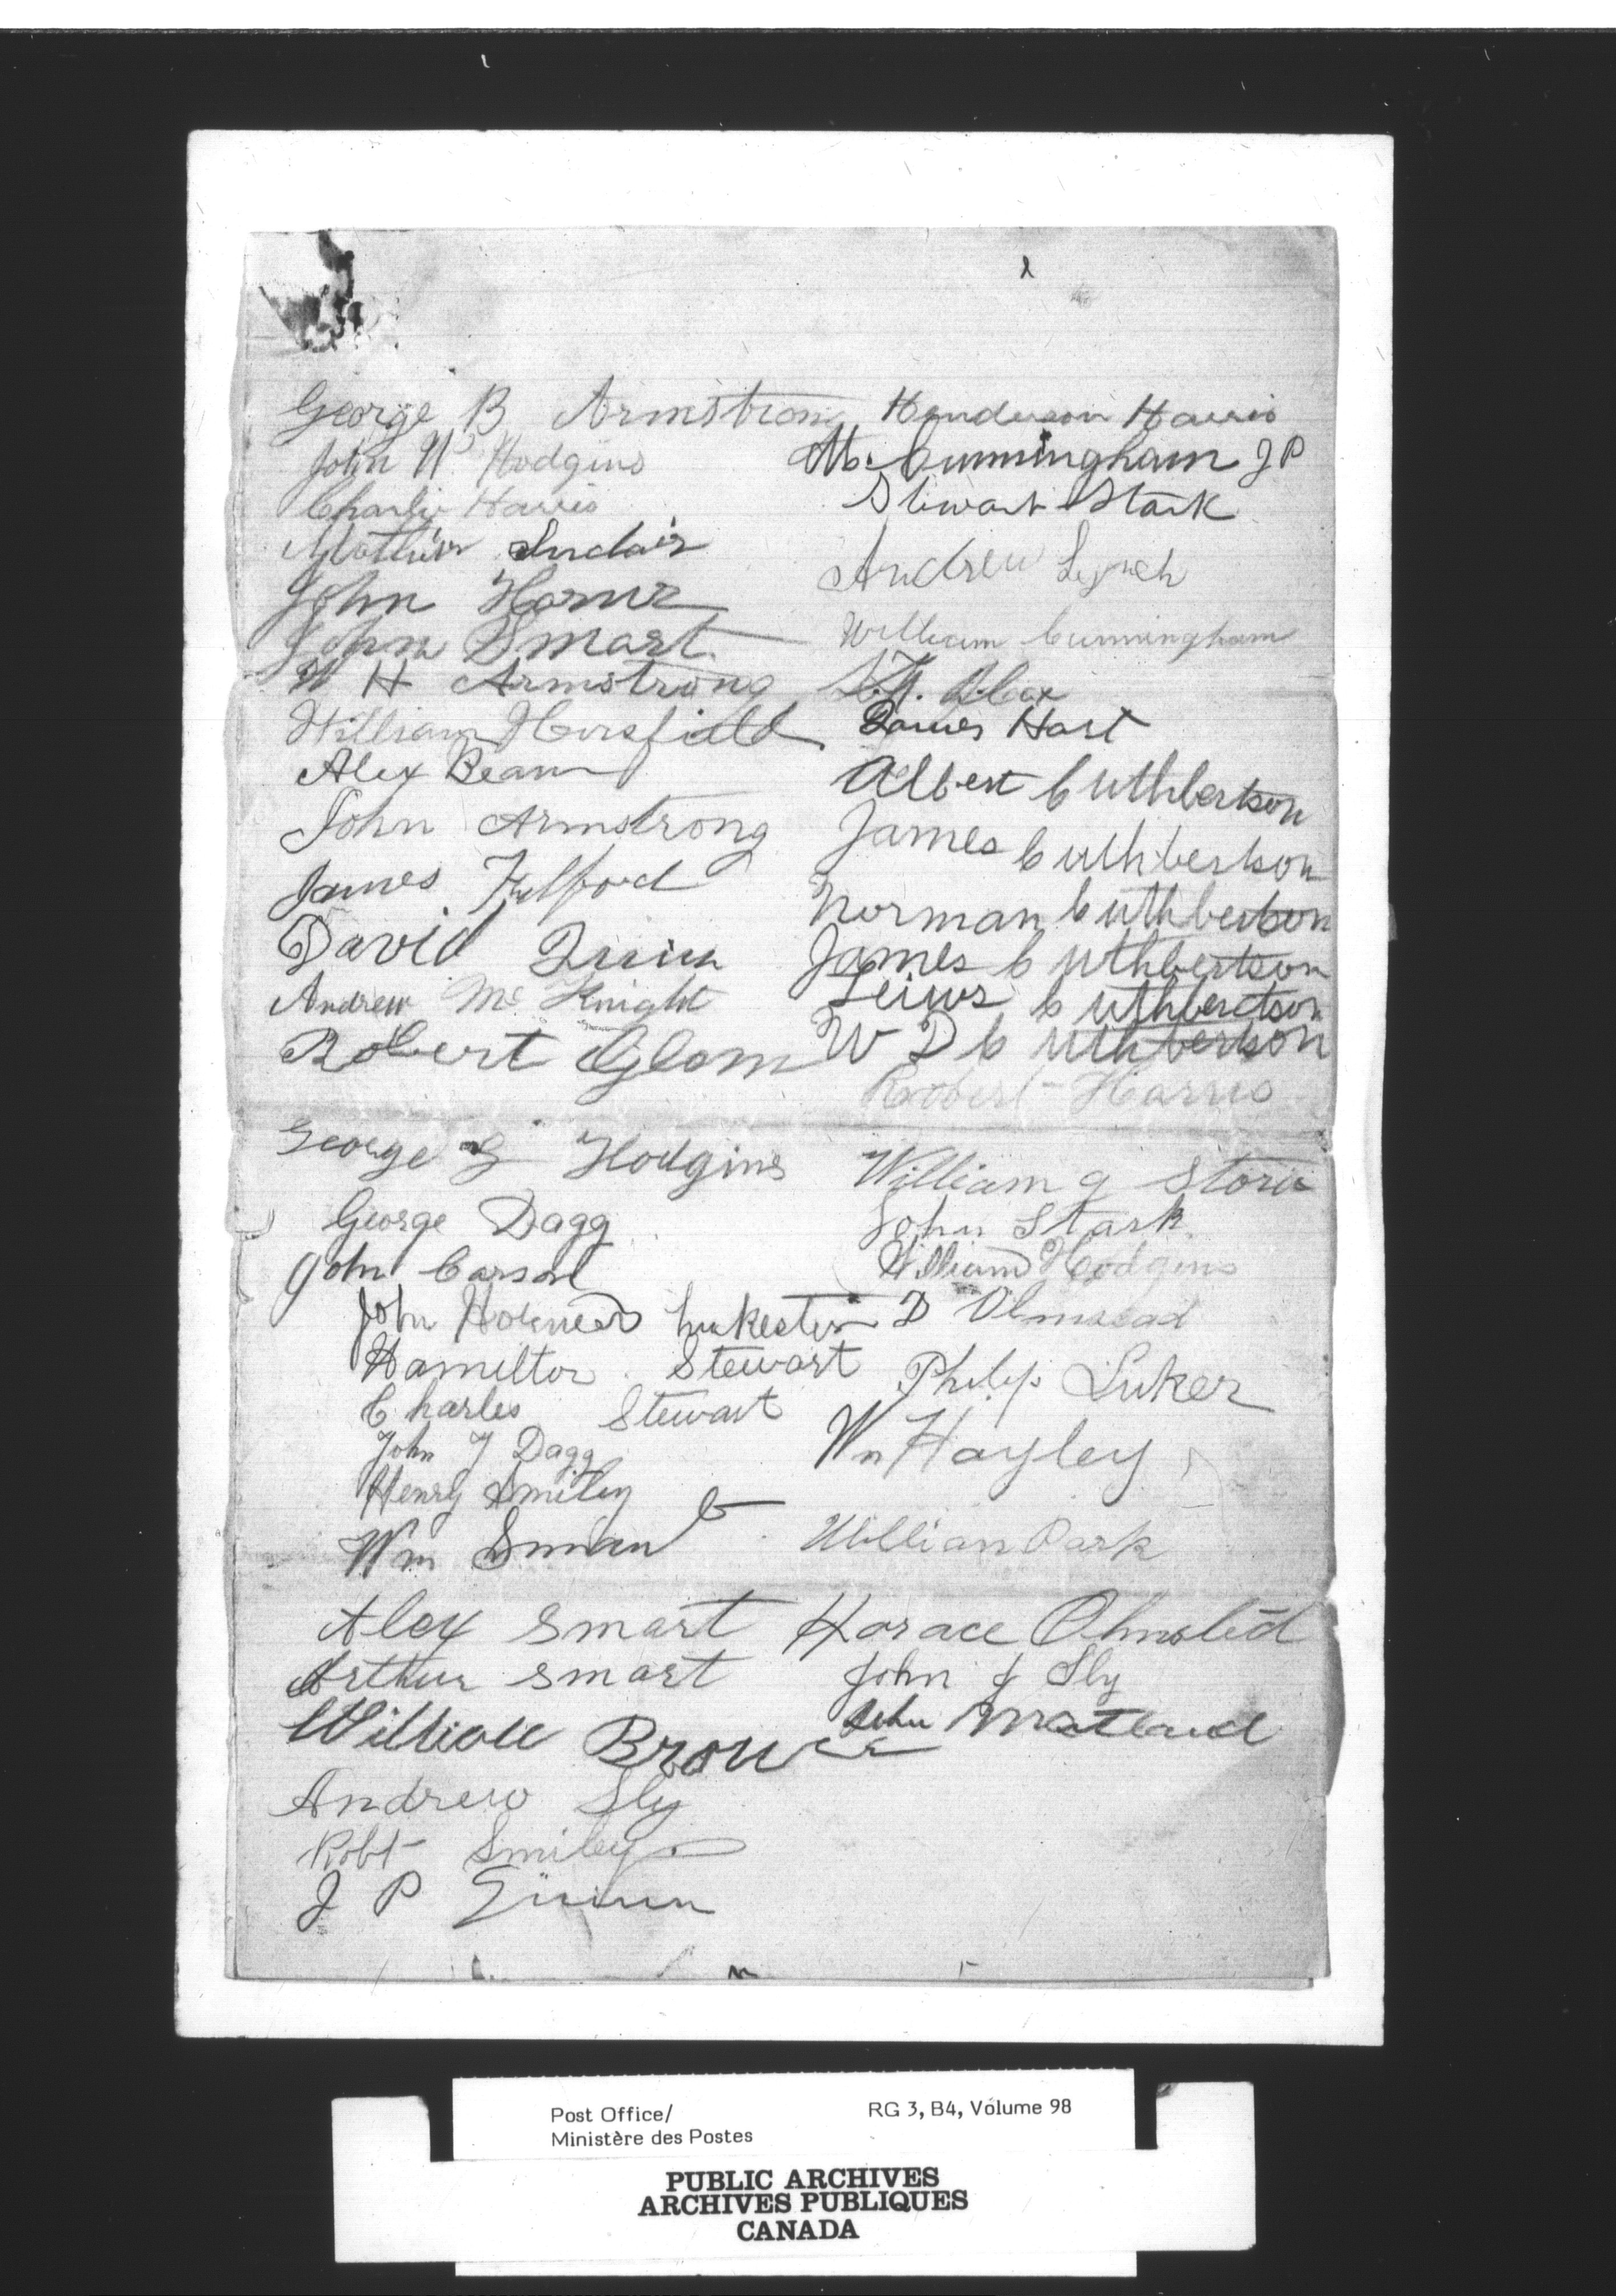 George B Armstrong
John W. Hodgins
Charlie Harris
Mathew Sinclair
John Horner
John Smart
W H Armstrong
William Horsfield
Alex Beam
John Armstrong
James Fulford
David Quinn
Andrew Mc Knight
Robert
George G Hodgins
George Dagg
John Carson
John
Hamilton Stewart
Charles Stewart
John J Dagg
Henry Smiley
Wm
Alex Smart
Arthur Smart
William Brown
Andrew Sly
Robt Smiley
J P Quinn
Henderson Harris
M. Cunningham J P
Stewart Stark
Andrew Lynch
William Cunningham
James Hart
Albert Cuthbertson
James Cuthbertson
Norman Cuthbertson
James Cuthbertson
Leiws Cuthbertson
W D Cuthbertson
Robert Harris
William g Storie
John Stark
William Hodgins
D Olmstead
Philip Luker
Wm Hayley
William Park
Horace Olmsted
John J Sly
John
Post Office/
Ministère des Postes
RG 3, B4, Volume 98
PUBLIC ARCHIVES
ARCHIVES PUBLIQUES
CANADA